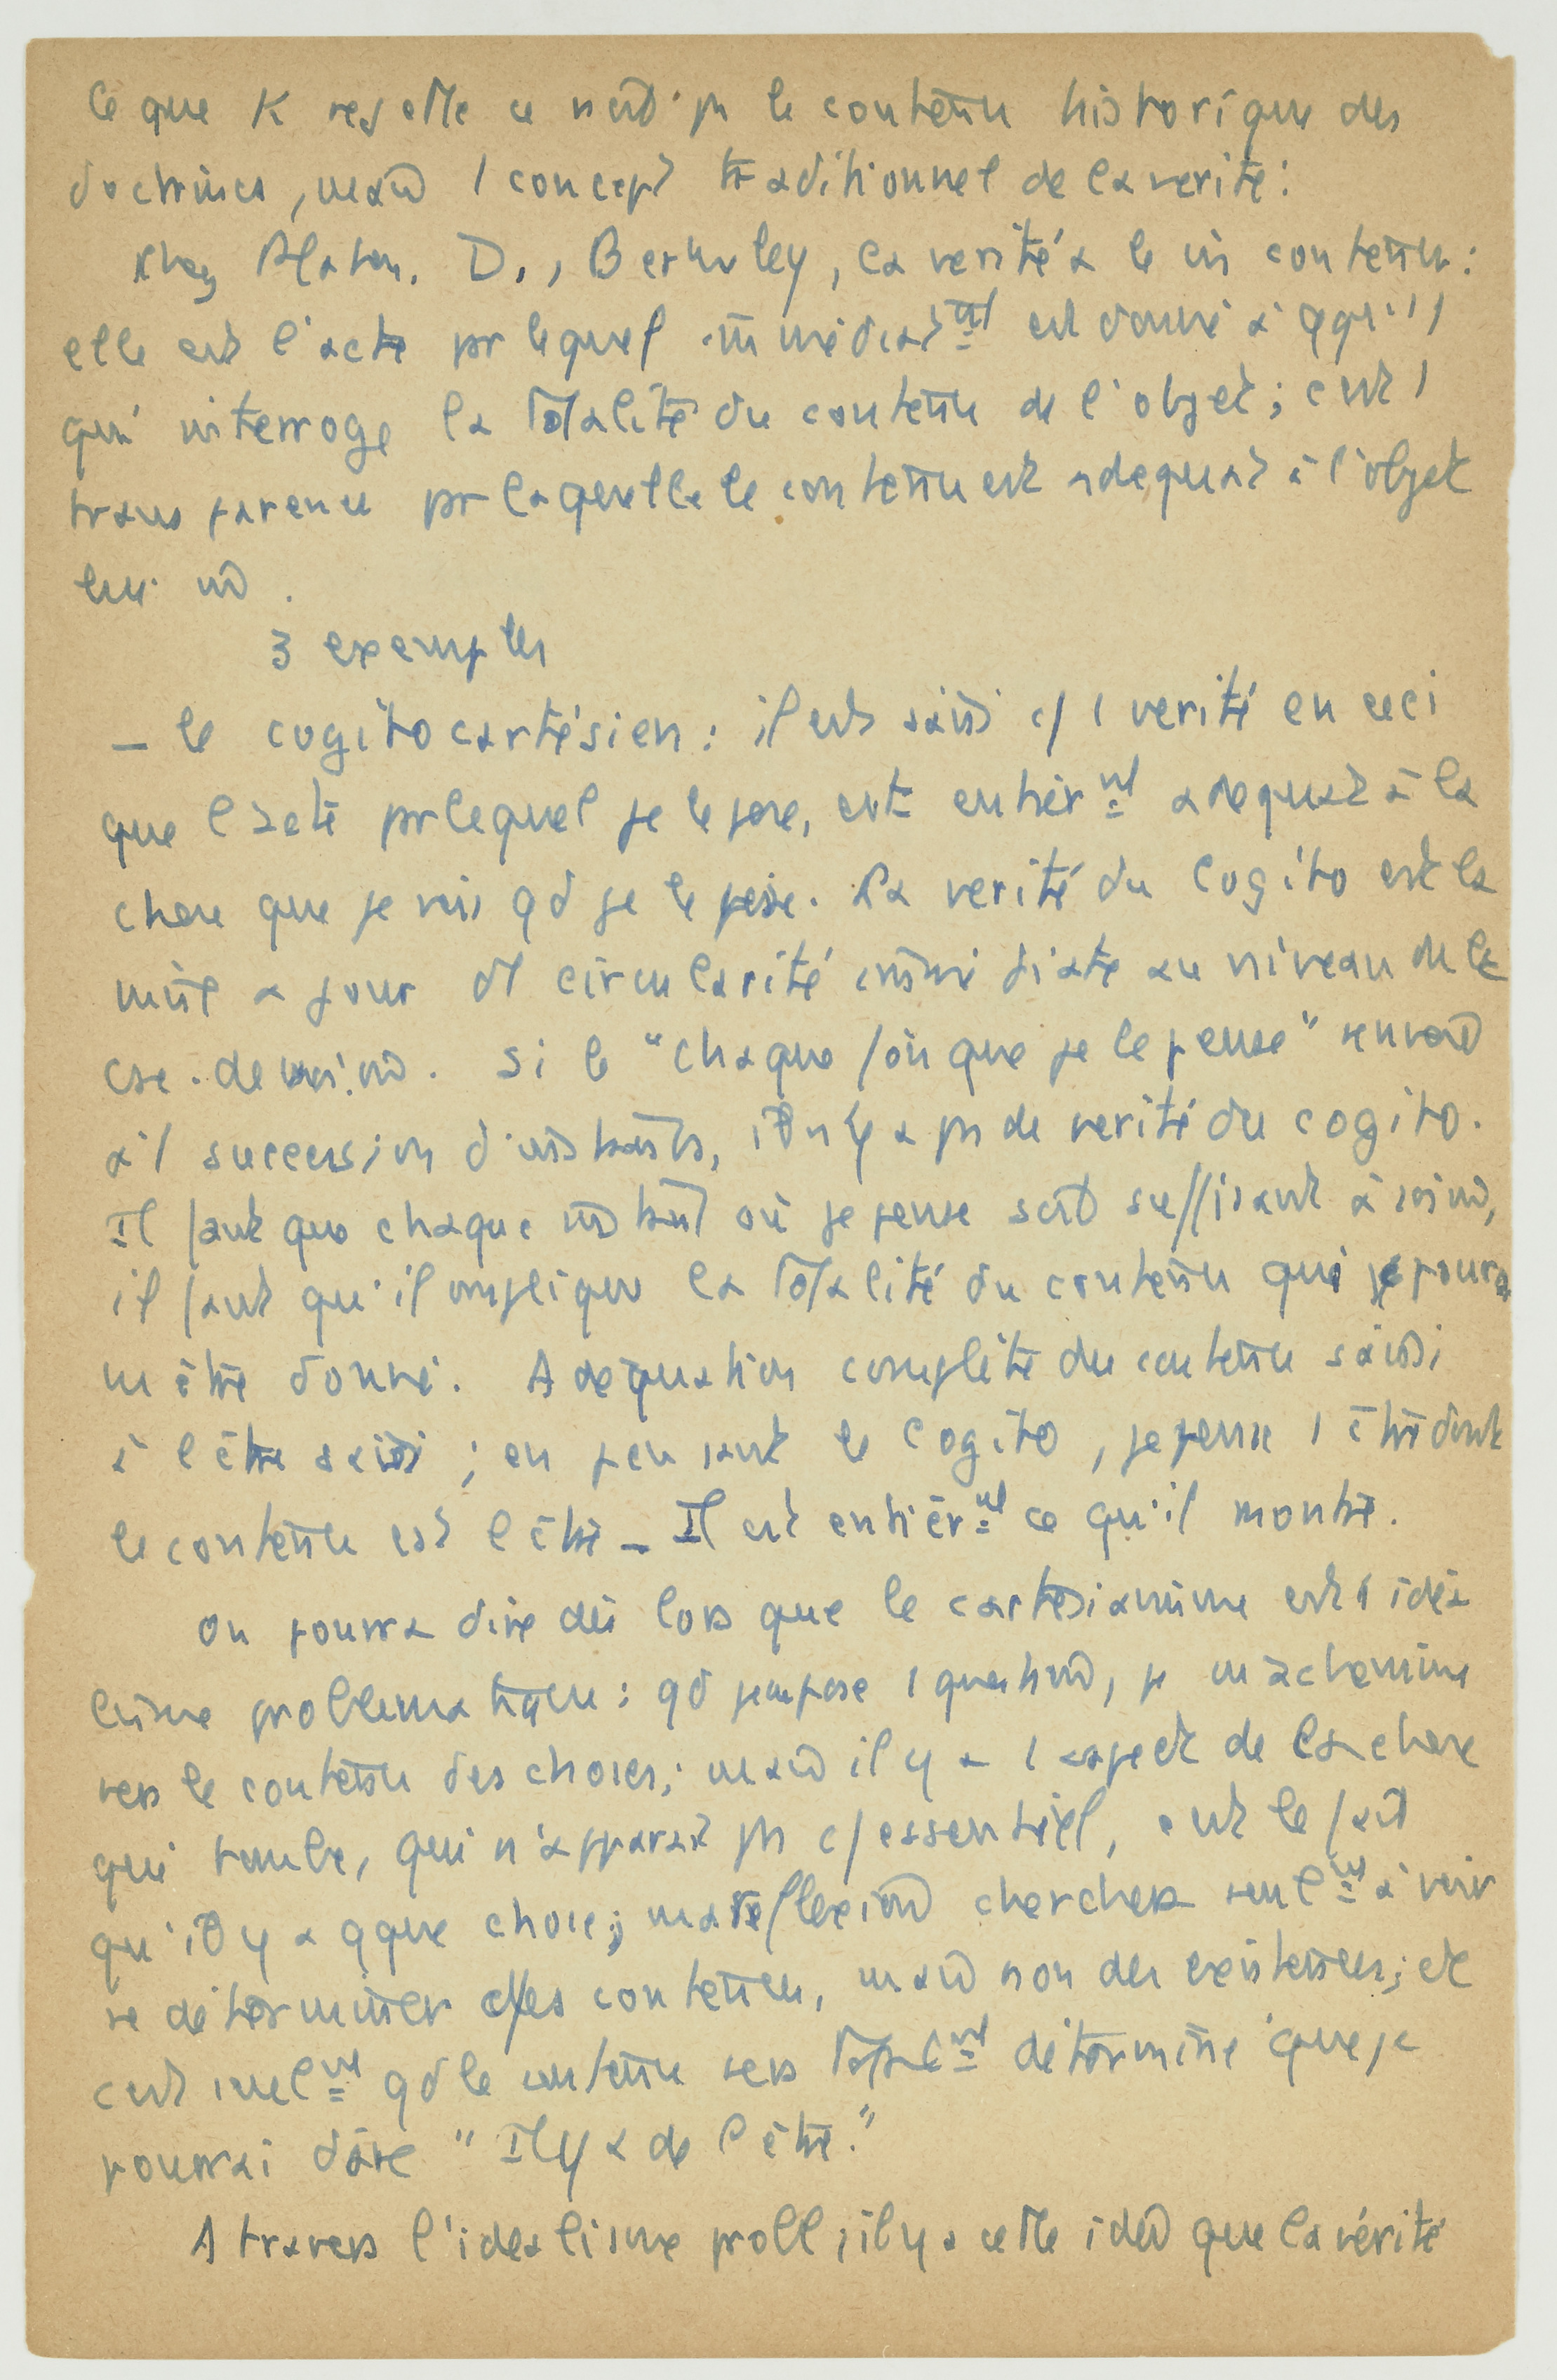 Ce que K rejette ce n'est pas le contenu historique des
doctrines, mais 1 concept traditionnel de la verité :
chez Platon, D., Berkeley, la verité a le m̂ contenu :
elle est l'acte pr lequel immédiatmt est donné à qqu'1
qui interroge la totalité du contenu de l'objet ; c'est 1
transparence pr laquelle le contenu est adequat à l'objet
lui m̂.
3 exemples
– le cogito cartésien : il est saisi c/ 1 verité en ceci
que l'acte pr lequel je le pose, est entièrmt adequat à la
chose que je vis qd je le pense. La verité du Cogito est la
mise à jour d'1 circularité immédiate au niveau de la
csce de soi m̂. Si le "chaque fois que je le pense" renvoie
à 1 succession d'instants, il n'y a pas de verité du cogito.
Il faut que chaque instant où je pense soit suffisant à soi m̂,
il faut qu'il implique la totalité du contenu qui pourra
m'être donné. Adéquation complète du contenu saisi
à l'être saisi ; en pensant le Cogito, je pense 1 être dont
le contenu est l'être – Il est entièrmt ce qu'il montre.
On pourra dire dès lors que le cartésianisme est 1 idéa
lisme problématique : qd je me pose 1 question, je m'achemine
vers le contenu des choses ; mais il y a 1 aspect de la chose
qui tombe, qui n'apparaît pas c/ essentiel, c'est le fait
qu'il y a qque chose ; ma réflexion cherchera seulmt à voir
se déterminer des contenus, mais non des existences ; et
c'est seulmt qd le contenu sera totalmt déterminé que je
pourrai dire "Il y a de l'être."
A travers l'idéalisme probl, il y a cette idée que la vérité